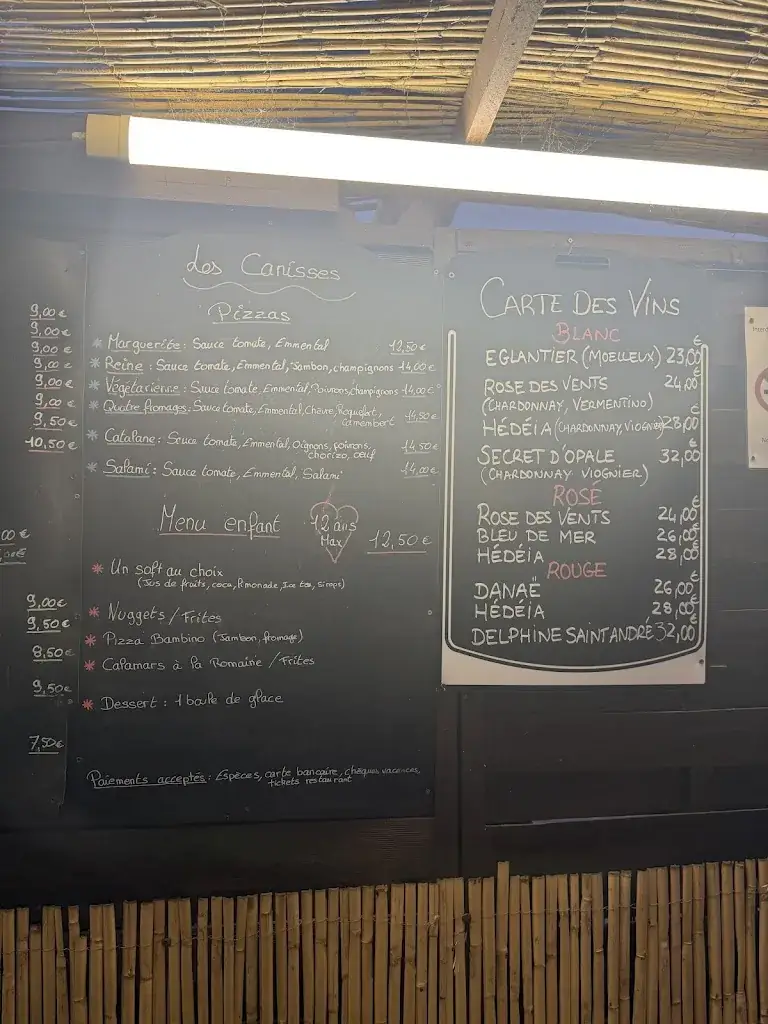 9,00 €
9,00 €
9,00 €
9,00 €
9,00 €
9,00 €
9,50 €
10,50 €
00 €
9,00 €
9,50 €
8,50 €
9,50 €
7,50 €
Les Canisses
Pizzas
* Marguerite : Sauce tomate, Emmental 12,50 €
* Reine : Sauce tomate, Emmental, Jambon, champignons 14,00 €
* Végétarienne : Sauce tomate, Emmental, Poivrons, champignons 14,00 €
* Quatre fromages : Sauce tomate, Emmental, Chèvre, Roquefort,
Camembert 14,50 €
* Catalane : Sauce tomate, Emmental, Oignons, poivrons,
chorizo, oeuf 14,50 €
* Salami : Sauce tomate, Emmental, Salami 14,00 €
Menu enfant 12 ans
Max 12,50 €
* Un soft au choix
(Jus de fruits, coca, limonade, Ice tea, Sirops)
* Nuggets / Frites
* Pizza Bambino (Jambon, fromage)
* Calamars à la Romaine / Frites
* Dessert : 1 boule de glace
Paiements acceptés : Espèces, carte bancaire, chèques vacances,
tickets restaurant
CARTE DES VINS
BLANC
EGLANTIER (MOELLEUX) 23,00 €
ROSE DES VENTS 24,00 €
(CHARDONNAY, VERMENTINO)
HÉDÉIA (CHARDONNAY, VIOGNIER) 28,00 €
SECRET D'OPALE 32,00 €
(CHARDONNAY VIOGNIER)
ROSÉ
ROSE DES VENTS 24,00 €
BLEU DE MER 26,00 €
HÉDÉIA 28,00 €
ROUGE
DANAË 26,00 €
HÉDÉIA 28,00 €
DELPHINE SAINT ANDRÉ 32,00 €